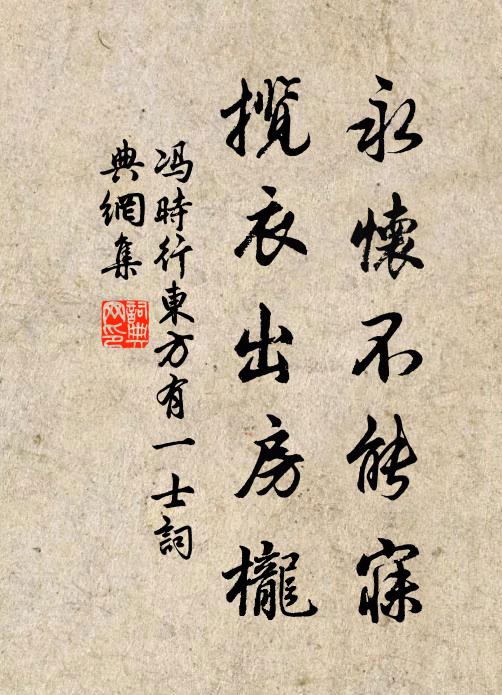 永懷不能寐
攬衣出房櫳
馮時行東方有一士詞
典網集
詞典網印